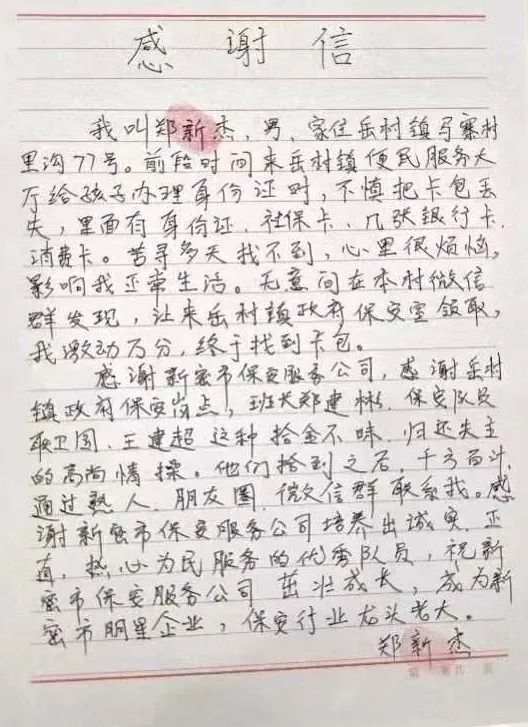 感谢信
我叫郑新杰,男,家住岳村镇马寨村
里沟77号。前段时间来岳村镇便民服务大
厅给孩子办理身份证时,不慎把卡包丢
失,里面有身份证、社保卡、几张银行卡、
消费卡。苦寻多天找不到,心里很烦恼,
影响我正常生活。无意间在本村微信
群发现,让来岳村镇政府保安室领取,
我激动万分,终于找到卡包。
感谢新密市保安服务公司,感谢岳村
镇政府保安岗点,班长郑建彬、保安队员
耿卫国、王建超这种拾金不昧、归还失主
的高尚情操。他们拾到之后,千方百计,
通过熟人、朋友圈、微信群联系我。感
谢新密市保安服务公司培养出诚实、正
直、热心为民服务的优秀队员,祝新
密市保安服务公司茁壮成长,成为新
密市明星企业,保安行业龙头老大。
郑新杰